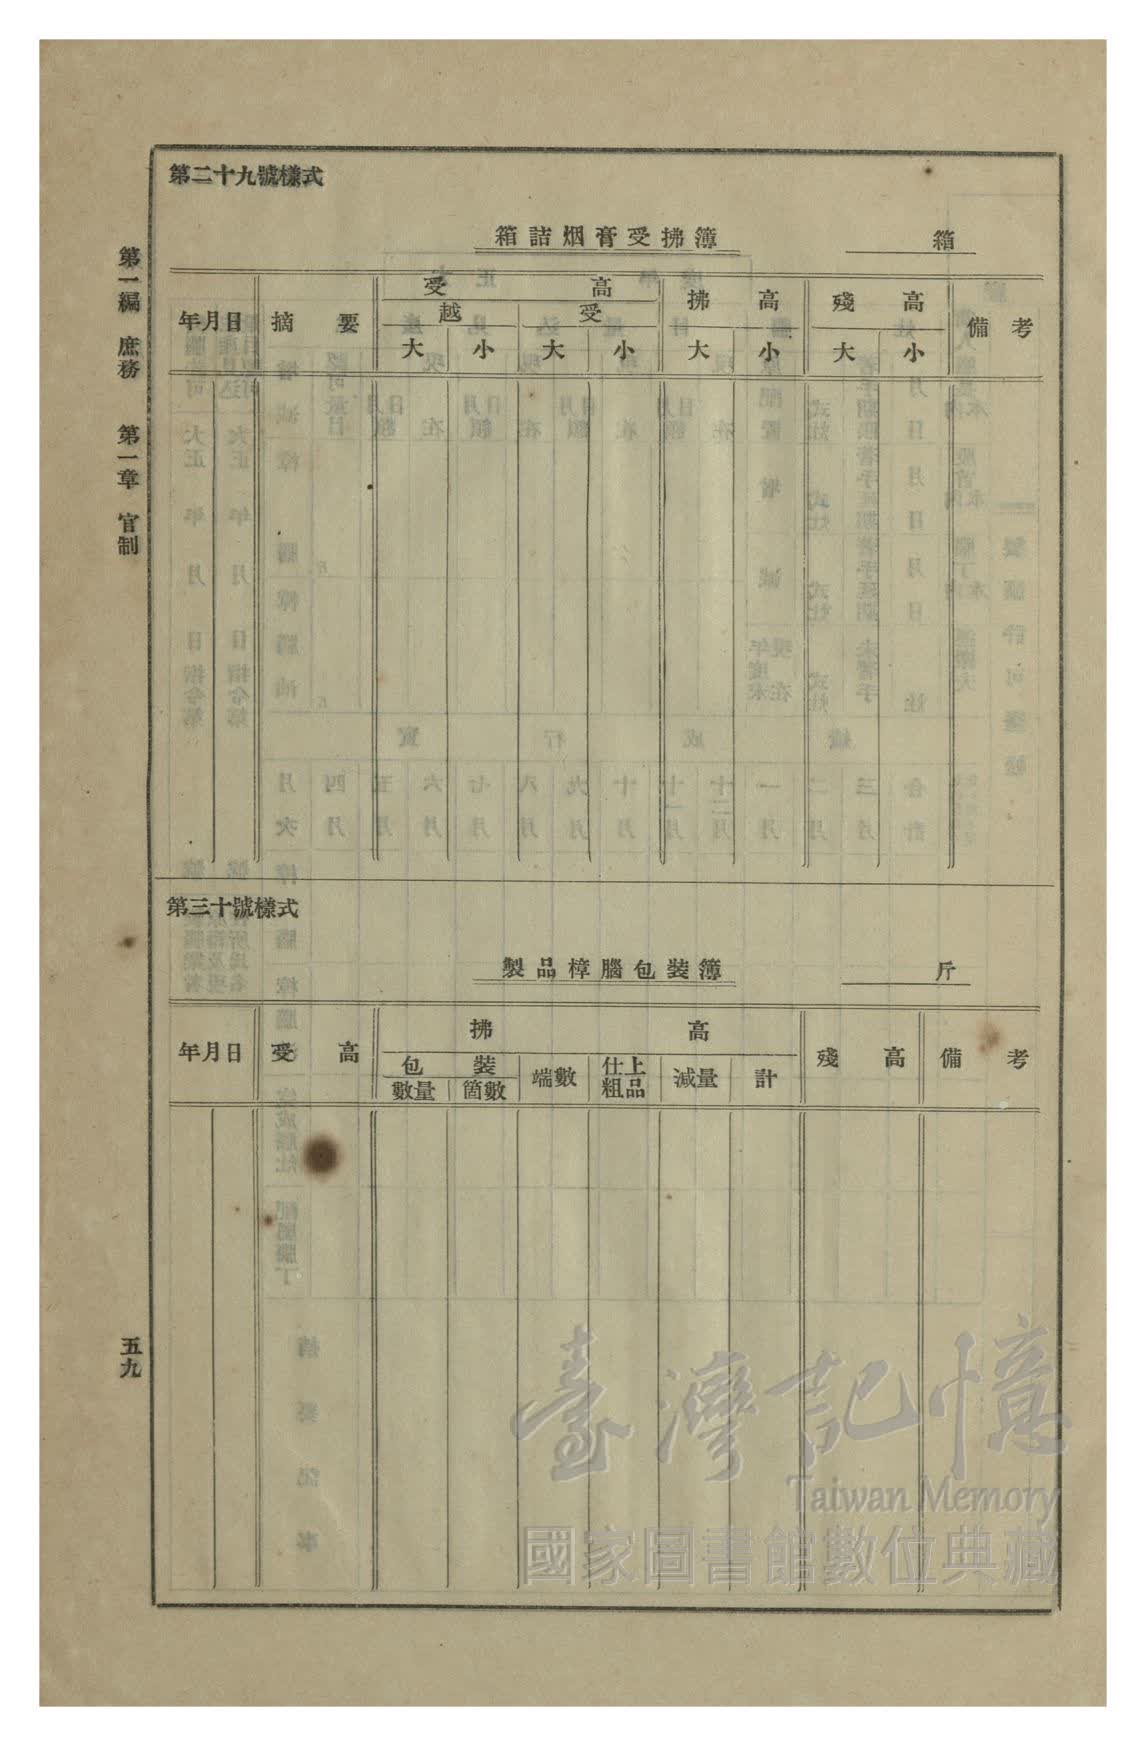 第一編　庶務　第一章　官制
五九
第二十九號樣式
箱詰烟膏受拂簿
箱
年月日
摘要
受高
越
受
大
小
大
小
拂高
大
小
殘高
大
小
備考
第三十號樣式
製品樟腦包裝簿
斤
年月日
受高
拂高
包裝
數量
箇數
端數
仕上
粗品
減量
計
殘高
備考
臺灣記憶
Taiwan Memory
國家圖書館數位典藏